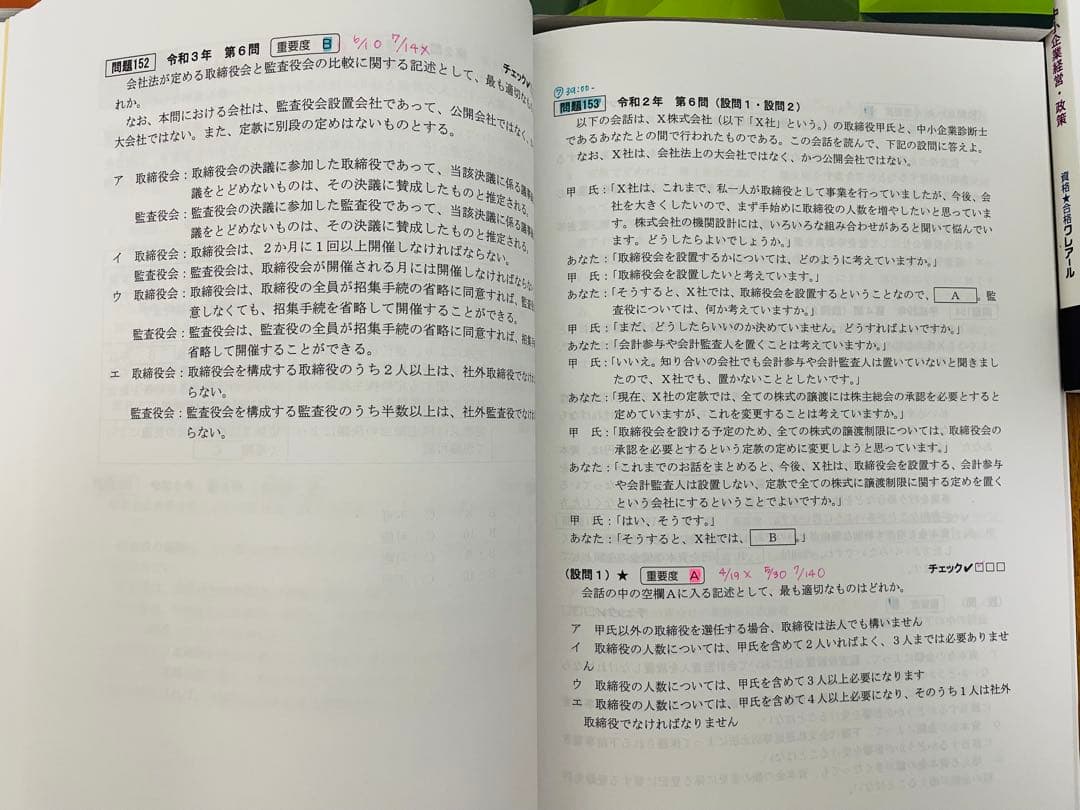 問題152 令和3年 第6問 重要度 B 6/10 7/14×
チェック✔
会社法が定める取締役会と監査役会の比較に関する記述として、最も適切なも
れか。
なお、本問における会社は、監査役会設置会社であって、公開会社ではなく、
大会社ではない。また、定款に別段の定めはないものとする。
ア 取締役会：取締役会の決議に参加した取締役であって、当該決議に係る議事
議をとどめないものは、その決議に賛成したものと推定される。
監査役会：監査役会の決議に参加した監査役であって、当該決議に係る議事
議をとどめないものは、その決議に賛成したものと推定される。
イ 取締役会：取締役会は、2か月に1回以上開催しなければならない。
監査役会：監査役会は、取締役会が開催される月には開催しなければならない
ウ 取締役会：取締役会は、取締役の全員が招集手続の省略に同意すれば、監査
意しなくても、招集手続を省略して開催することができる。
監査役会：監査役会は、監査役の全員が招集手続の省略に同意すれば、招集手
省略して開催することができる。
エ 取締役会：取締役会を構成する取締役のうち2人以上は、社外取締役でなけ
らない。
監査役会：監査役会を構成する監査役のうち半数以上は、社外監査役でなけ
らない。
39:00-
問題153 令和2年 第6問（設問1・設問2）
以下の会話は、X株式会社（以下「X社」という。）の取締役甲氏と、中小企業診断士
であるあなたとの間で行われたものである。この会話を読んで、下記の設問に答えよ。
なお、X社は、会社法上の大会社ではなく、かつ公開会社ではない。
甲 氏：「X社は、これまで、私一人が取締役として事業を行っていましたが、今後、会
社を大きくしたいので、まず手始めに取締役の人数を増やしたいと思っていま
す。株式会社の機関設計には、いろいろな組み合わせがあると聞いて悩んでい
ます。どうしたらよいでしょうか。」
あなた：「取締役会を設置するかについては、どのように考えていますか。」
甲 氏：「取締役会を設置したいと考えています。」
あなた：「そうすると、X社では、取締役会を設置するということなので、 A 。監
査役については、何か考えていますか。」
甲 氏：「まだ、どうしたらいいのか決めていません。どうすればよいですか。」
あなた：「会計参与や会計監査人を置くことは考えていますか。」
甲 氏：「いいえ。知り合いの会社でも会計参与や会計監査人は置いていないと聞きまし
たので、X社でも、置かないこととしたいです。」
あなた：「現在、X社の定款では、全ての株式の譲渡には株主総会の承認を必要とすると
定めていますが、これを変更することは考えていますか。」
甲 氏：「取締役会を設ける予定のため、全ての株式の譲渡制限については、取締役会の
承認を必要とするという定款の定めに変更しようと思っています。」
あなた：「これまでのお話をまとめると、今後、X社は、取締役会を設置する、会計参与
や会計監査人は設置しない、定款で全ての株式に譲渡制限に関する定めを置く
という会社にするということでよいですか。」
甲 氏：「はい、そうです。」
あなた：「そうすると、X社では、 B 。」
（設問1）★ 重要度 A 4/19 × 5/30 7/140 チェック✔
会話の中の空欄Aに入る記述として、最も適切なものはどれか。
ア 甲氏以外の取締役を選任する場合、取締役は法人でも構いません
イ 取締役の人数については、甲氏を含めて2人いればよく、3人までは必要ありませ
ん
ウ 取締役の人数については、甲氏を含めて3人以上必要になります
エ 取締役の人数については、甲氏を含めて4人以上必要になり、そのうち1人は社外
取締役でなければなりません
中小企業経営・政策
資格★合格クレアール